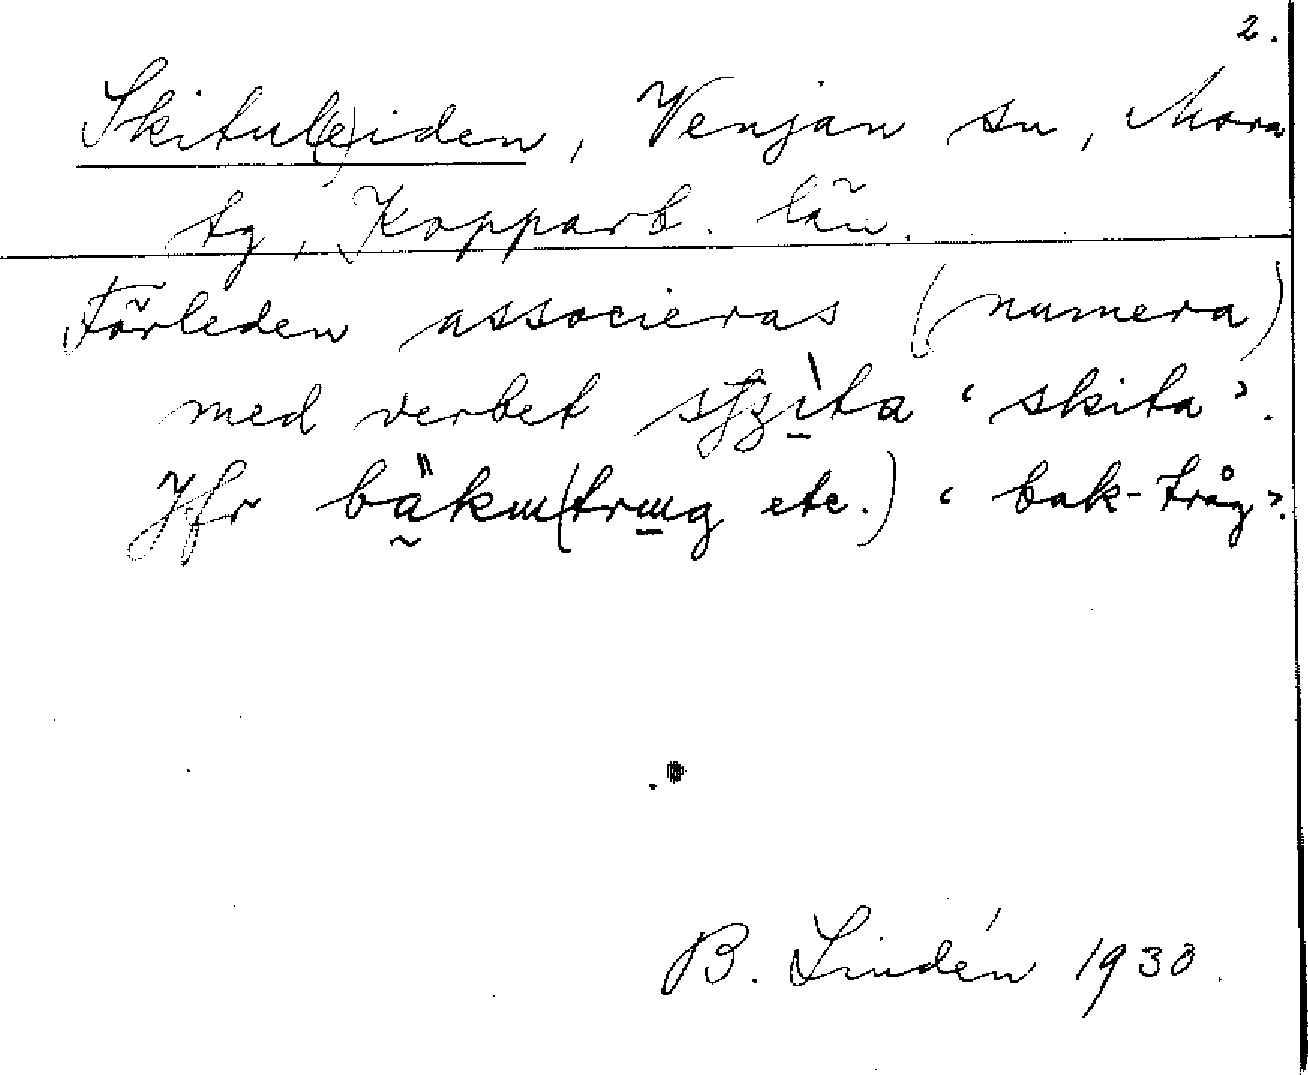 2.
Skitul(e)iden, Venjan sn, Mora
tg, Kopparb. län.
Förleden associeras (numera)
med verbet ‘skita’.
Jfr etc.) ‘bak-tråg’.
B. Lindén 1930.